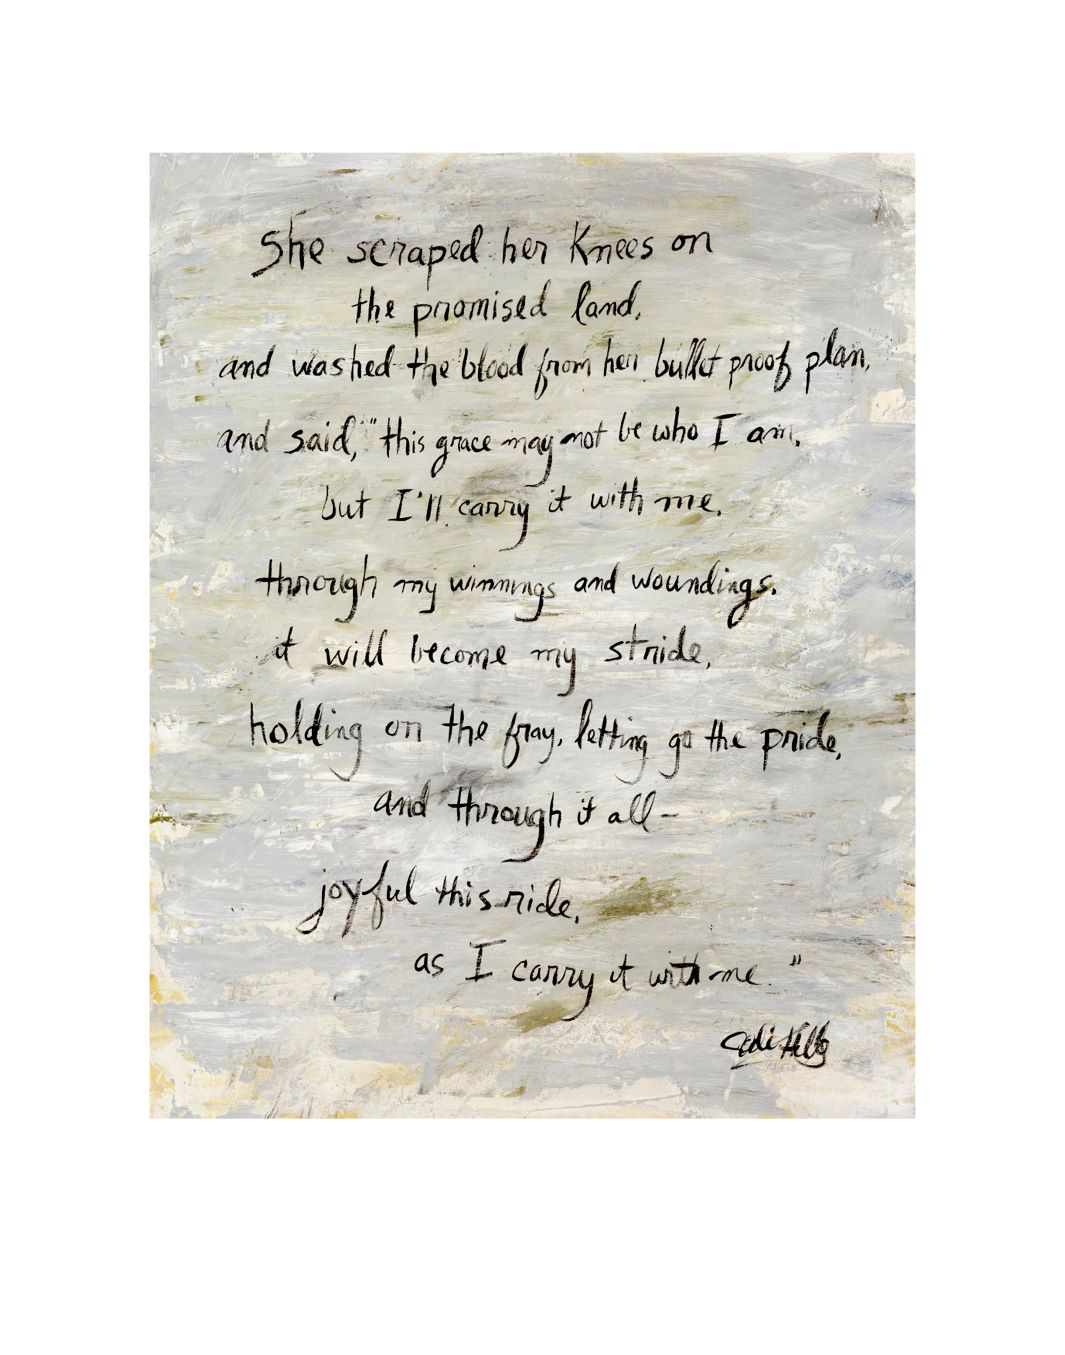 She scraped her knees on
the promised land,
and washed the blood from her bullet proof plan,
and said, "this grace may not be who I am,
but I'll carry it with me.
through my winnings and woundings.
it will become my stride,
holding on the fray, letting go the pride,
and through it all-
joyful this ride,
as I carry it with me."